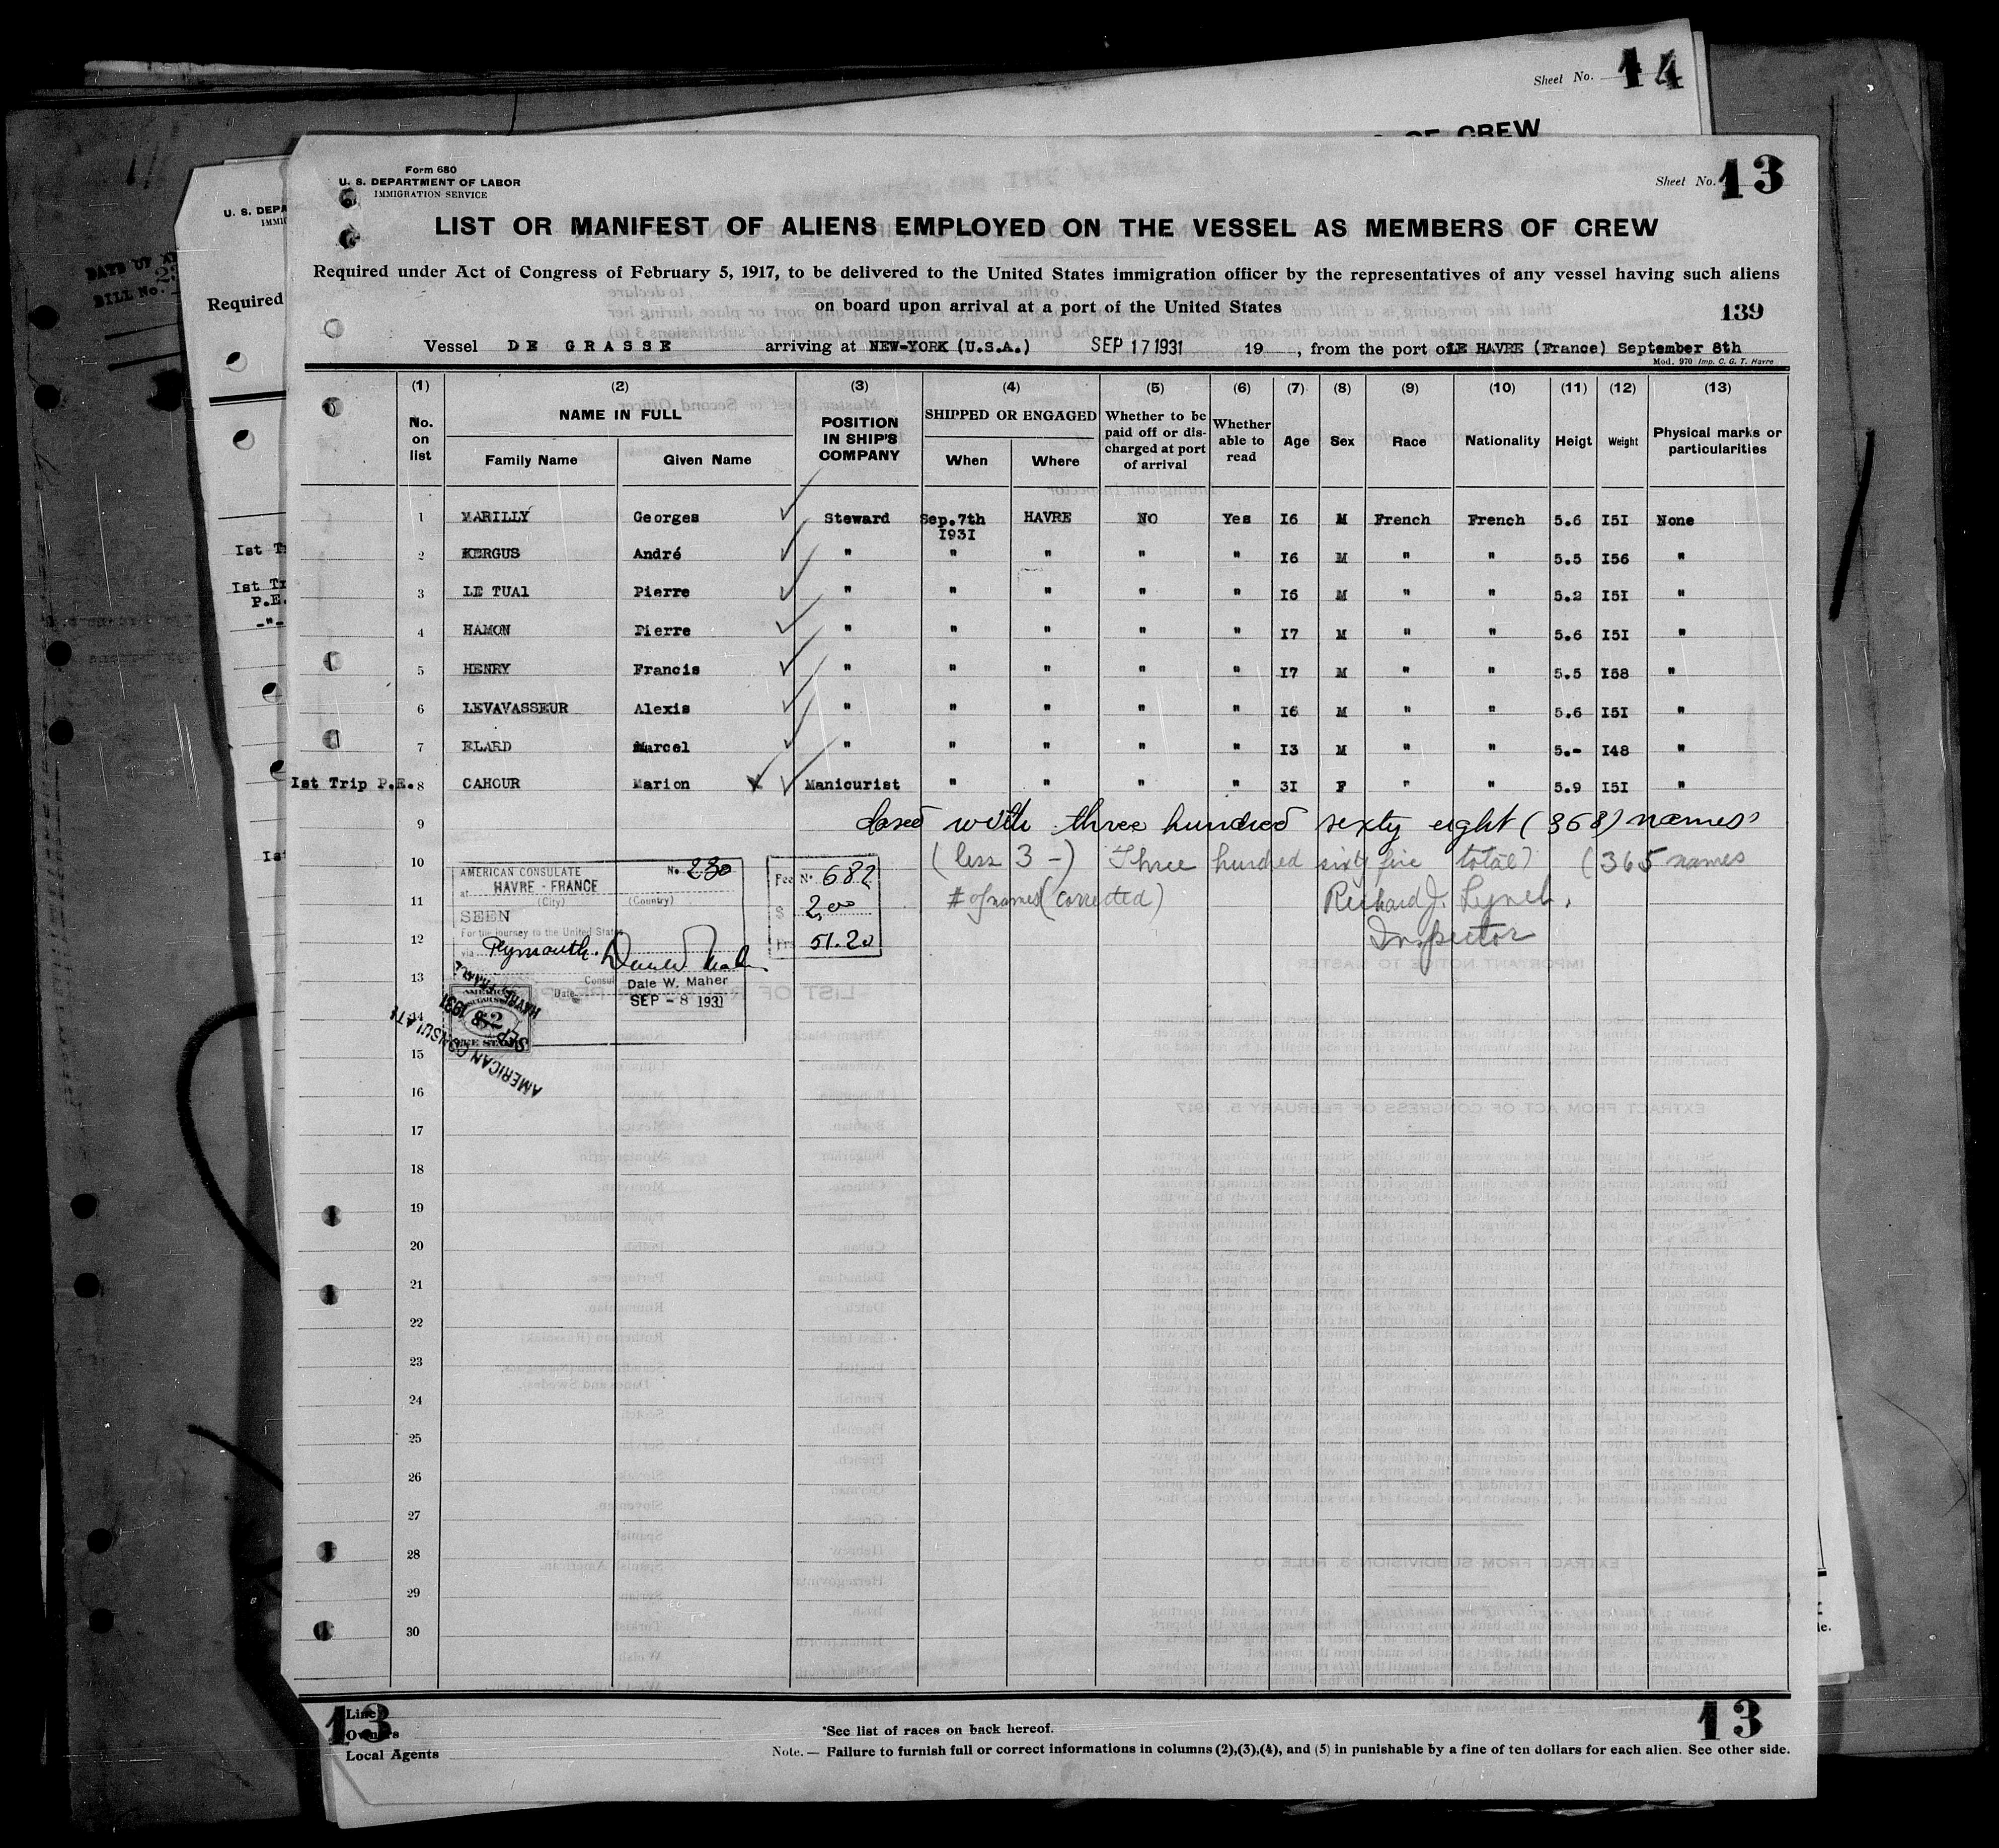 Sheet No. 14
OF CREW
Form 680
U. S. DEPARTMENT OF LABOR
IMMIGRATION SERVICE
Sheet No. 13
LIST OR MANIFEST OF ALIENS EMPLOYED ON THE VESSEL AS MEMBERS OF CREW
Required under Act of Congress of February 5, 1917, to be delivered to the United States immigration officer by the representatives of any vessel having such aliens
on board upon arrival at a port of the United States
139
Vessel DE GRASSE arriving at NEW-YORK (U.S.A.) SEP 17 1931 19 , from the port of LE HAVRE (France) September 8th
Mod. 970 Imp. C. G. T. Havre
(1) (2) (3) (4) (5) (6) (7) (8) (9) (10) (11) (12) (13)
No. on list NAME IN FULL Family Name Given Name POSITION IN SHIP'S COMPANY SHIPPED OR ENGAGED When Where Whether to be paid off or discharged at port of arrival Whether able to read Age Sex Race Nationality Heigt Weight Physical marks or particularities
1 MARILLY Georges Steward Sep. 7th HAVRE NO Yes I6 M French French 5.6 I5I None
I93I
2 KERGUS André " " " " " I6 M " " 5.5 I56 "
3 LE TUAl Pierre " " " " " I6 M " " 5.2 I5I "
4 HAMON Pierre " " " " " I7 M " " 5.6 I5I "
5 HENRY Francis " " " " " I7 M " " 5.5 I58 "
6 LEVAVASSEUR Alexis " " " " " I6 M " " 5.6 I5I "
7 ELARD Marcel " " " " " I3 M " " 5.- I48 "
Ist Trip P.E. 8 CAHOUR Marion Manicurist " " " " 3I F " " 5.9 I5I "
9 closed with three hundred sexty eight (368) names
10 (less 3 -) Three hundred sixty five total) (365 names
11 # of names (corrected) Richard J. Lynch.
12 Inspector
AMERICAN CONSULATE No. 230
at HAVRE - FRANCE
(City) (Country)
SEEN
For the journey to the United States
via Plymouth.
Consul Dale W. Maher
Date SEP - 8 1931
Fee No. 682
$ 2,00
Frs 51.20
AMERICAN CONSULATE
SEP 8 1931
HAVRE, FRANCE
13
15
16
17
18
19
20
21
22
23
24
25
26
27
28
29
30
13
Line
Owners
Local Agents
*See list of races on back hereof.
Note. — Failure to furnish full or correct informations in columns (2),(3),(4), and (5) in punishable by a fine of ten dollars for each alien. See other side.
13